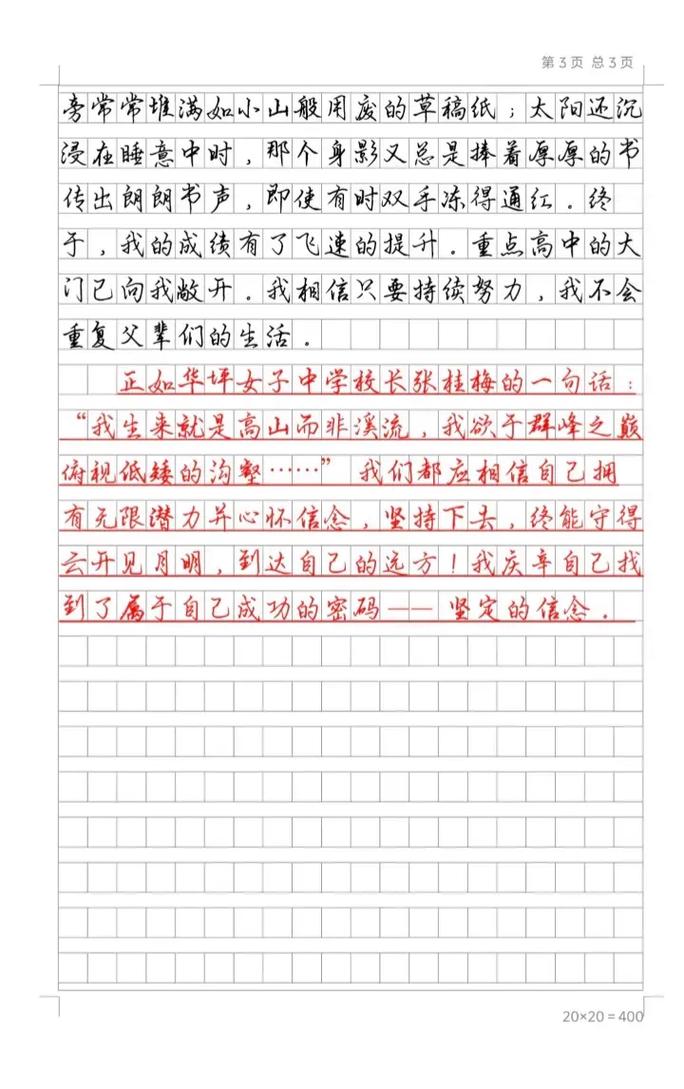 第3页 总3页
旁常常堆满如小山般用废的草稿纸；太阳还沉
浸在睡意中时，那个身影又总是捧着厚厚的书
传出朗朗书声，即使有时双手冻得通红。终
于，我的成绩有了飞速的提升。重点高中的大
门已向我敞开。我相信只要持续努力，我不会
重复父辈们的生活。
正如华坪女子中学校长张桂梅的一句话：
“我生来就是高山而非溪流，我欲于群峰之巅
俯视低矮的沟壑……” 我们都应相信自己拥
有无限潜力并心怀信念，坚持下去，终能守得
云开见月明，到达自己的远方！我庆幸自己找
到了属于自己成功的密码——坚定的信念。
20×20=400